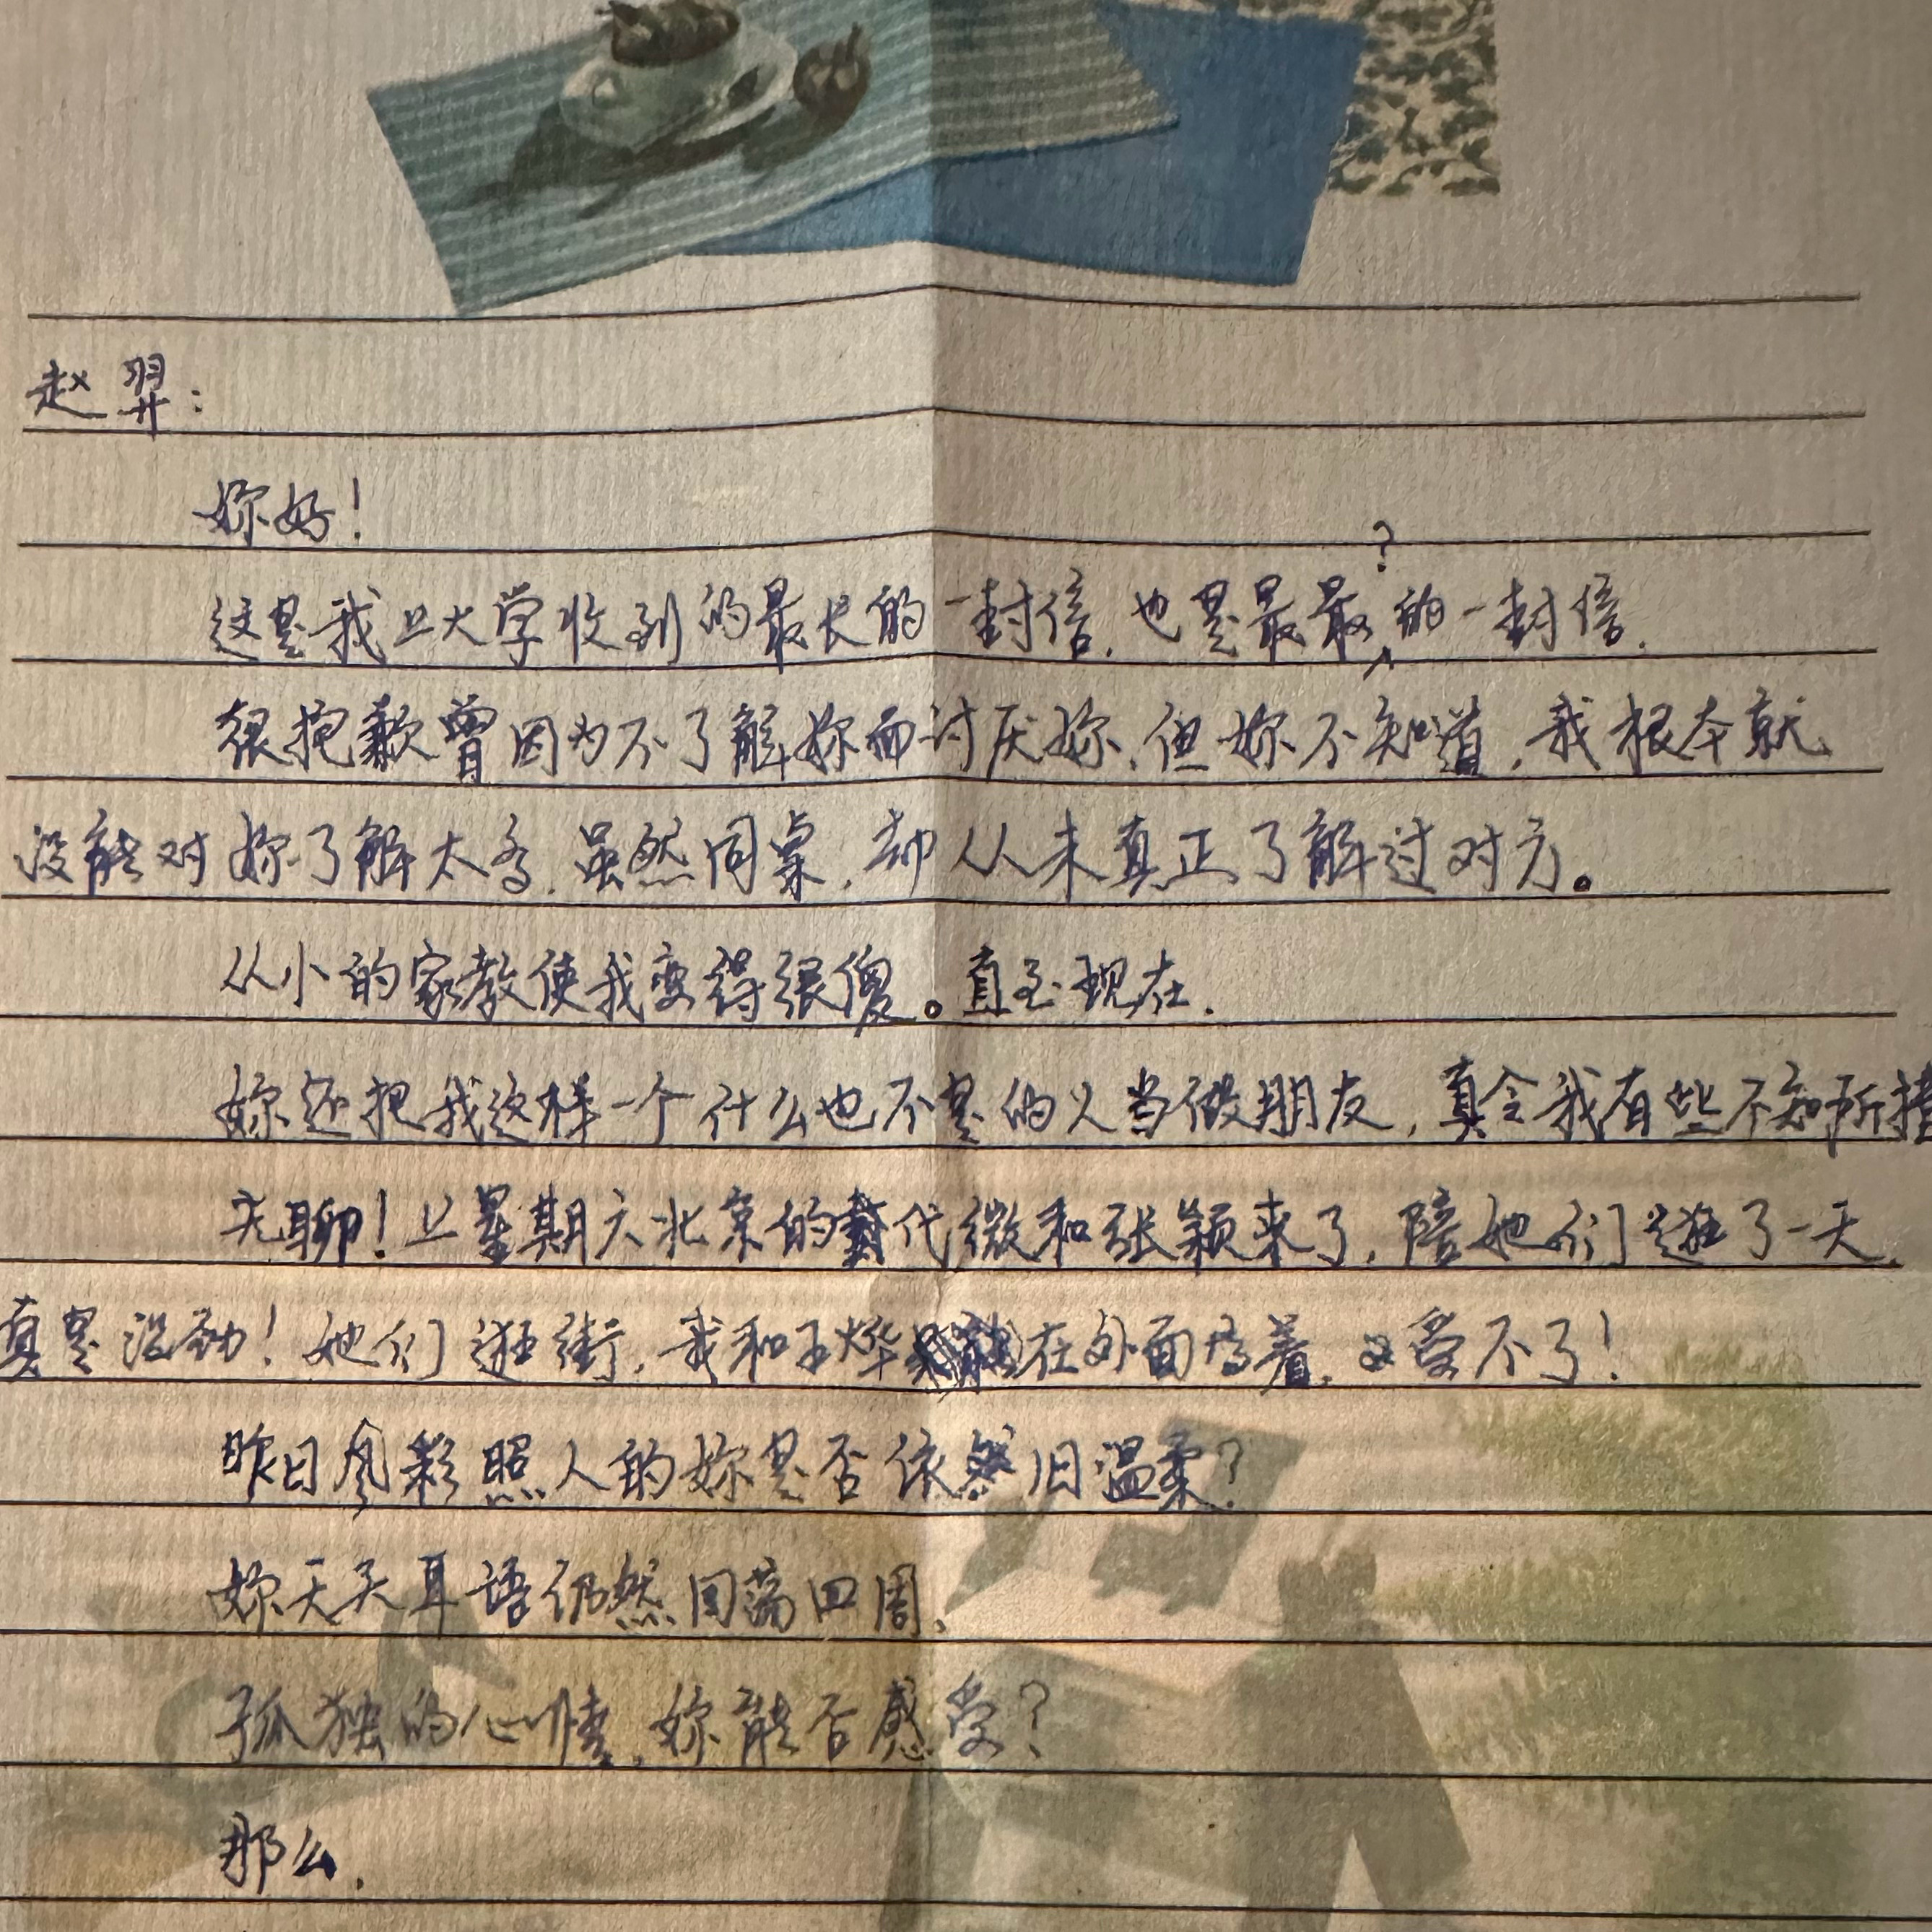 赵羿：
妳好！
这是我上大学收到的最长的一封信，也是最最？的一封信.
很抱歉曾因为不了解妳而讨厌妳，但妳不知道，我根本就
没能对妳了解太多，虽然同桌，却从未真正了解过对方。
从小的家教使我变得很傻。直至现在.
妳还把我这样一个什么也不是的人当做朋友，真令我有些不知所措
无聊！上星期六北京的代微和张颖来了，陪她们逛了一天.
真是没劲！她们逛街，我和王烨在外面等着，受不了！
昨日风彩照人的妳是否依旧温柔？
妳天天耳语仍然回荡四周，
孤独的心情，妳能否感受？
那么，